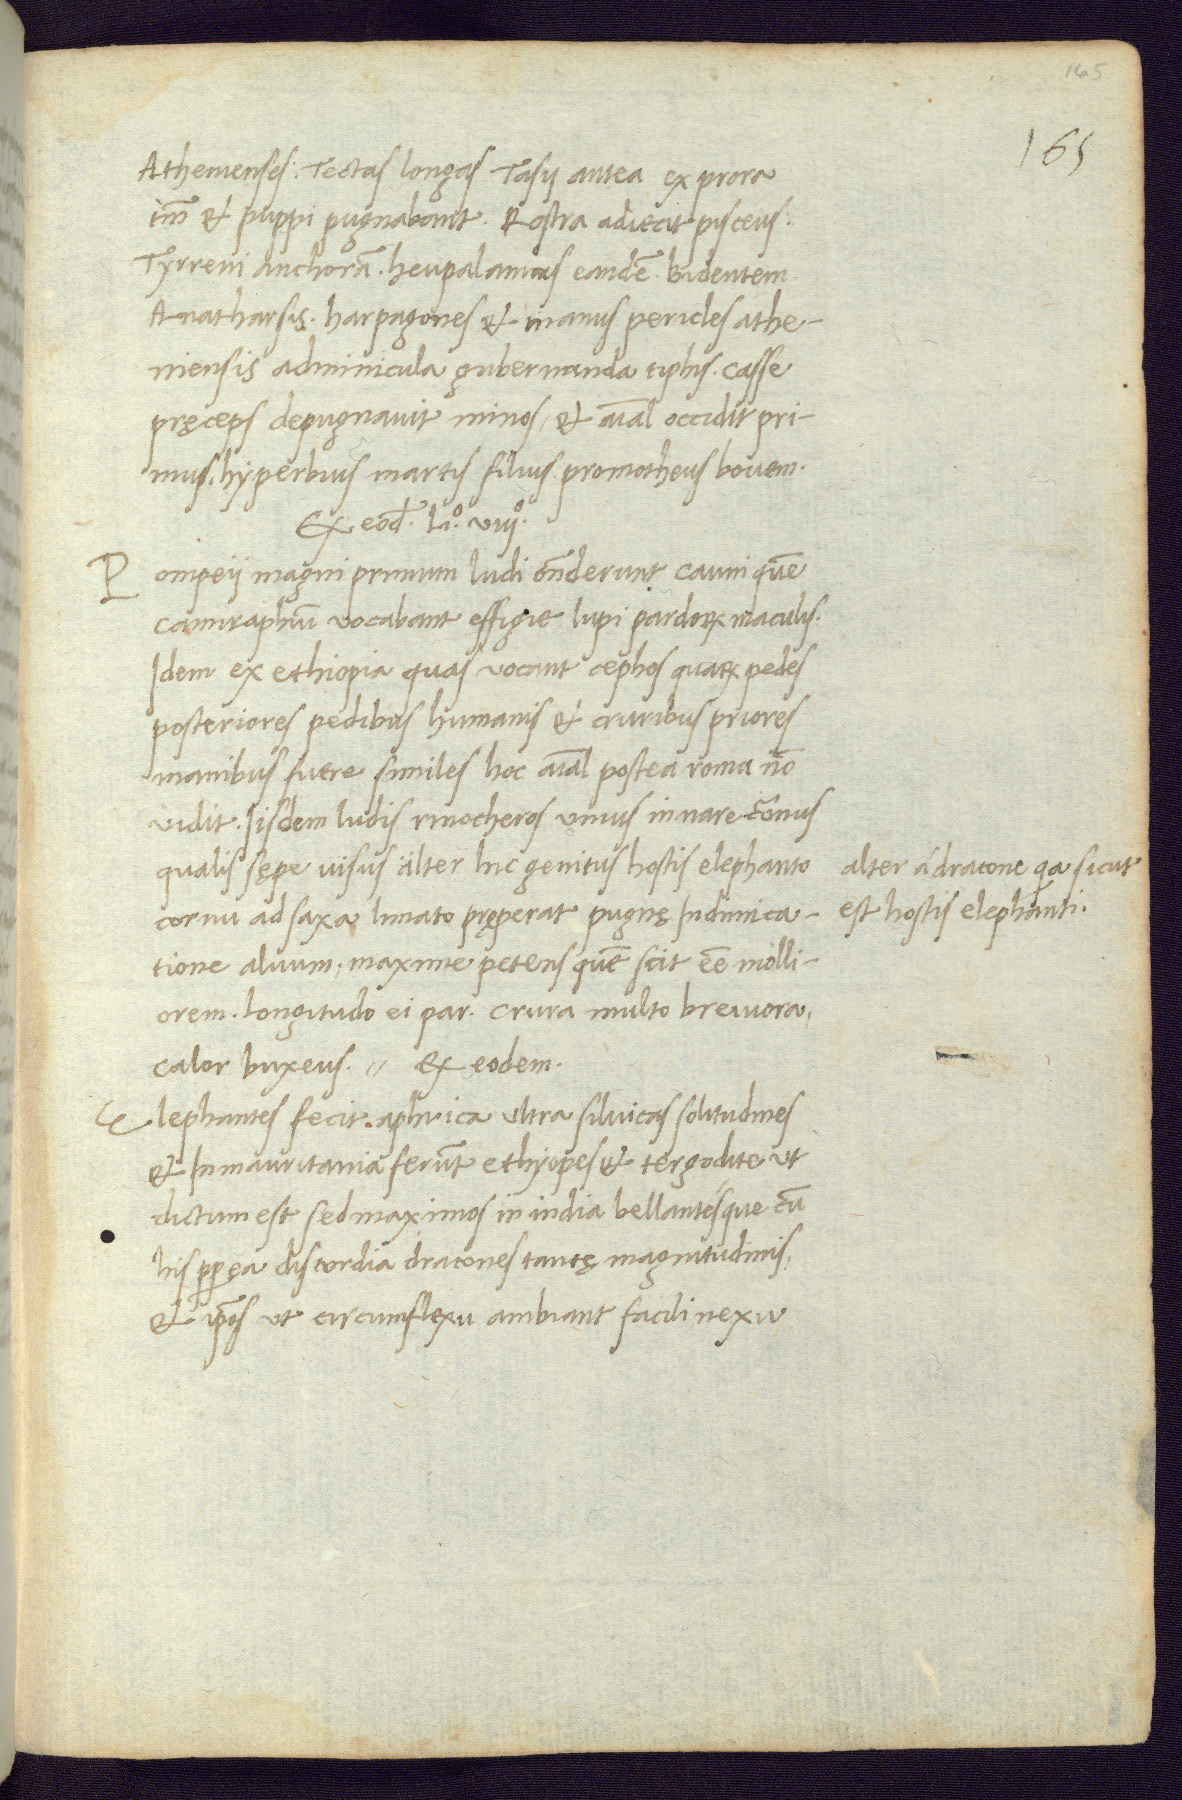 165
165
Athenienses: Tectas longas Tasii antea ex prora
tm̄ & puppi pugnabant. Rostra adiecit pisceus:
Tyrreni anchorā. heupalamus eandē. Bidentem
Anatharsis. harpagones & manus pericles athe-
niensis adminicula gubernanda tiphis. Casse
pręceps depugnauit minos, & aīal occidit pri-
mus. hyperbius martis filius. promotheus bouem.
Ex eod̄. Liº. viijº.
Pompeij magni primum ludi on̄derunt cauni quē
camraphiū vocabant effigie lupi pardoꝝ maculis.
Idem ex ethiopia quas vocant cephos quaꝝ pedes
posteriores pedibus humanis & cruribus priores
manibus fuere similes hoc aīal postea roma nō
vidit. Iisdem ludis rinocheros vnius in nare cornus
qualis sępe uisus alter hic genitus hostis elephanto
alter a dracone qa sicut
cornu ad saxa limato pręperat pugnę In dimica-
est hostis elephanti.
tione aluum, maxime petens quē scit eē molli-
orem. longitudo ei par. Crura multo breuiora,
calor buxeus. // Ex eodem.
Elephantes fecit. aphrica vltra siluicas solitudines
& In mauritania ferūt ethyopes & tergodite vt
dictum est sed maximos in india bellantesque cū
his ꝑpęa discordia dracones tantę magnitudinis,
& ip̄os vt circumflexu ambiant facili nexu